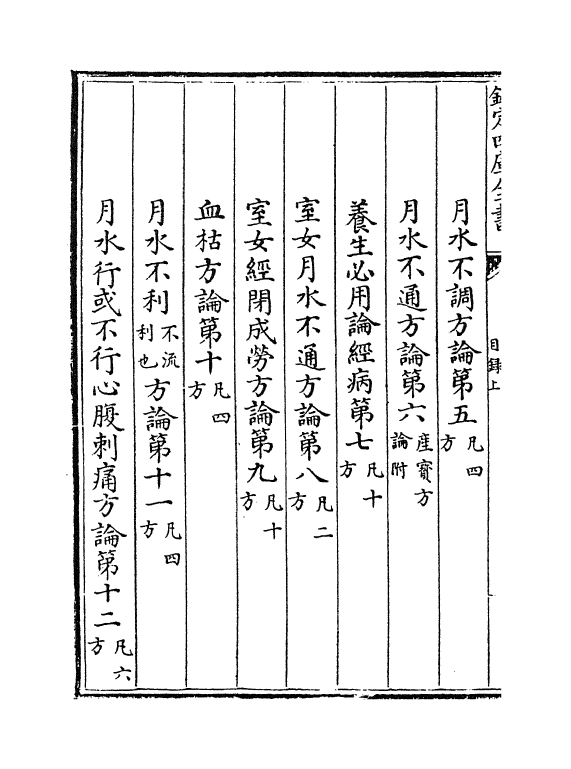 欽定四庫全書 目錄上
月水不調方論第五凡四方
月水不通方論第六産寳方論附
養生必用論經病第七凡十方
室女月水不通方論第八凡二方
室女經閉成勞方論第九凡十方
血枯方論第十凡四方
月水不利不流利也方論第十一凡四方
月水行或不行心腹刺痛方論第十二凡六方